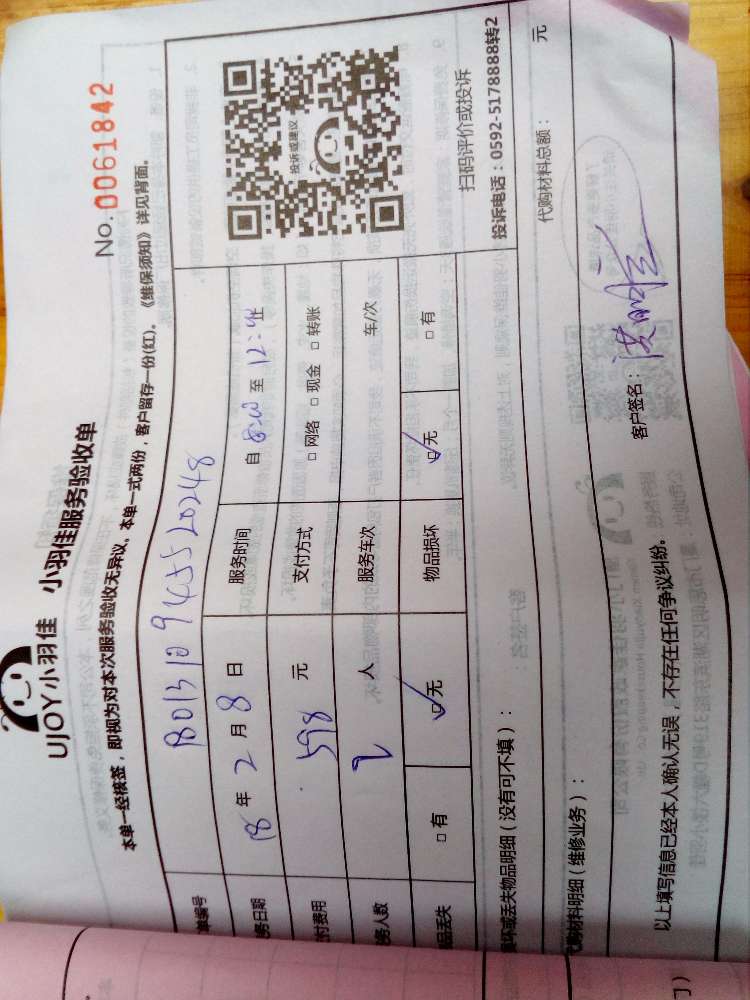 UJOY小羽佳 小羽佳服务验收单
No. 0061842
本单一经核签，即视为对本次服务验收无异议。本单一式两份，客户留存一份(红)。《维保须知》详见背面。
单编号 1801310945520248
务日期 18年2月8日 服务时间 自 8:00 至 12:止
付费用 598 元 支付方式 □网络 □现金 □转账
务人数 2 人 服务车次 车/次
品丢失 □有 ☑无 物品损坏 ☑无 □有
投诉或建议
扫码评价或投诉
投诉电话：0592-5178888转2
坏或丢失物品明细（没有可不填）：
代购材料明细（维修业务）：
代购材料总额： 元
以上填写信息已经本人确认无误，不存在任何争议纠纷。
客户签名：